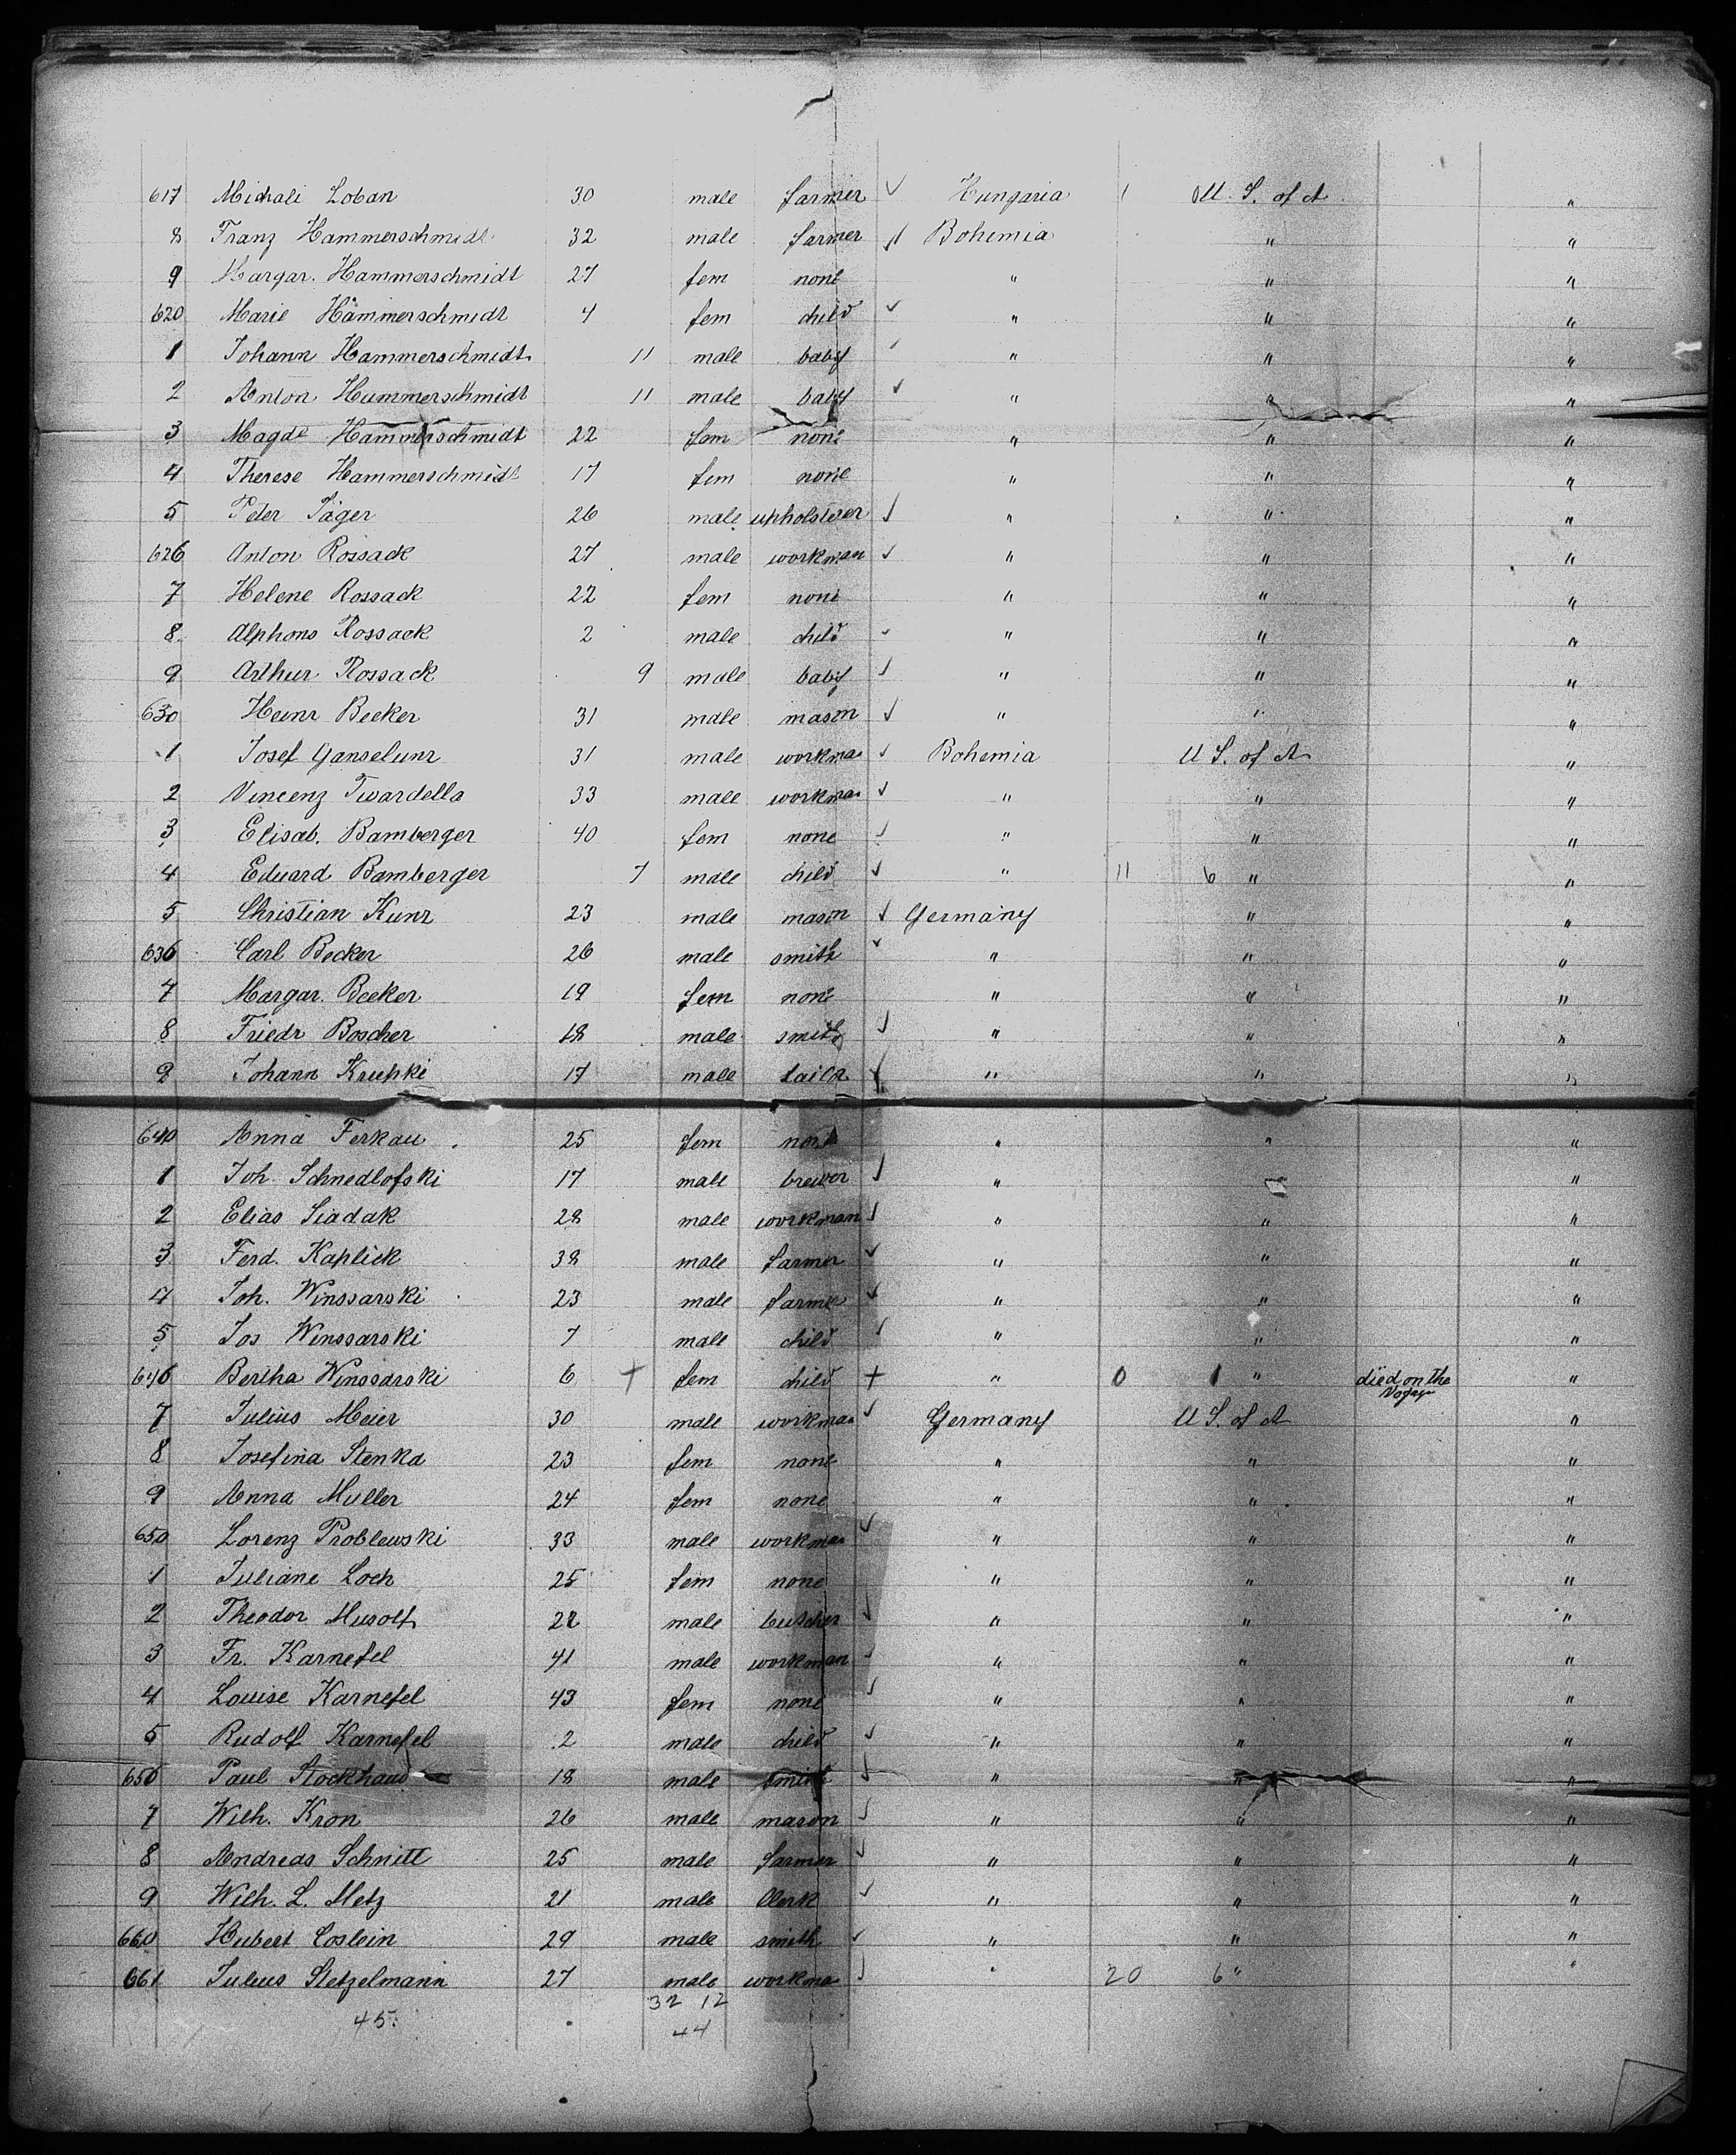 617 Michali Loban 30 male farmer ✓ Hungaria 1 U. S. of A. "
8 Franz Hammerschmidt 32 male farmer ✓ Bohemia " "
9 Margar. Hammerschmidt 27 fem none " " "
620 Marie Hammerschmidt 4 fem child ✓ " " "
1 Johann Hammerschmidt 11 male baby ✓ " " "
2 Anton Hammerschmidt 11 male baby ✓ " " "
3 Magde Hammerschmidt 22 fem none " " "
4 Therese Hammerschmidt 17 fem none " " "
5 Peter Jäger 26 male upholsterer ✓ " " "
626 Anton Rossack 27 male workman ✓ " " "
7 Helene Rossack 22 fem none " " "
8 Alphons Rossack 2 male child ✓ " " "
9 Arthur Rossack 9 male baby ✓ " " "
630 Heinr Becker 31 male mason ✓ " " "
1 Josef Ganselunr 31 male workma ✓ Bohemia U S. of A "
2 Vincenz Twardella 33 male workman ✓ " " "
3 Elisab. Bamberger 40 fem none ✓ " " "
4 Eduard Bamberger 7 male child ✓ " 11 6 " "
5 Christian Kunz 23 male mason ✓ Germany " "
636 Carl Becker 26 male smith ✓ " " "
7 Margar. Becker 19 fem none " " "
8 Friedr Boscher 18 male smith ✓ " " "
9 Johann Krupki 17 male tailor ✓ " " "
640 Anna Ferkau 25 fem none " " "
1 Joh. Schnedlofski 17 male brewer ✓ " " "
2 Elias Siadak 28 male workman ✓ " " "
3 Ferd. Kaplick 38 male farmer ✓ " " "
4 Joh. Winssarski 23 male farmer ✓ " " "
5 Jos Winssarski 7 male child ✓ " " "
646 Bertha Winssarski 6 + fem child + " 0 1 " died on the Voyage "
7 Julius Meier 30 male workman ✓ Germany U S. of A "
8 Josefina Stenka 23 fem none " " "
9 Anna Muller 24 fem none " " "
650 Lorenz Problewski 33 male workman ✓ " " "
1 Juliane Loch 25 fem none " " "
2 Theodor Musolf 22 male butcher ✓ " " "
3 Fr. Karnefel 41 male workman ✓ " " "
4 Louise Karnefel 43 fem none ✓ " " "
5 Rudolf Karnefel 2 male child ✓ " " "
656 Paul Stockhaus 18 male smith ✓ " " "
7 Wilh. Kron 26 male mason ✓ " " "
8 Andreas Schnitt 25 male farmer ✓ " " "
9 Wilh. L. Metz 21 male Clerk ✓ " " "
660 Hubert Coslein 29 male smith ✓ " " "
661 Julius Stetzelmann 27 male workma ✓ " 20 6 " "
32 12
45. 44